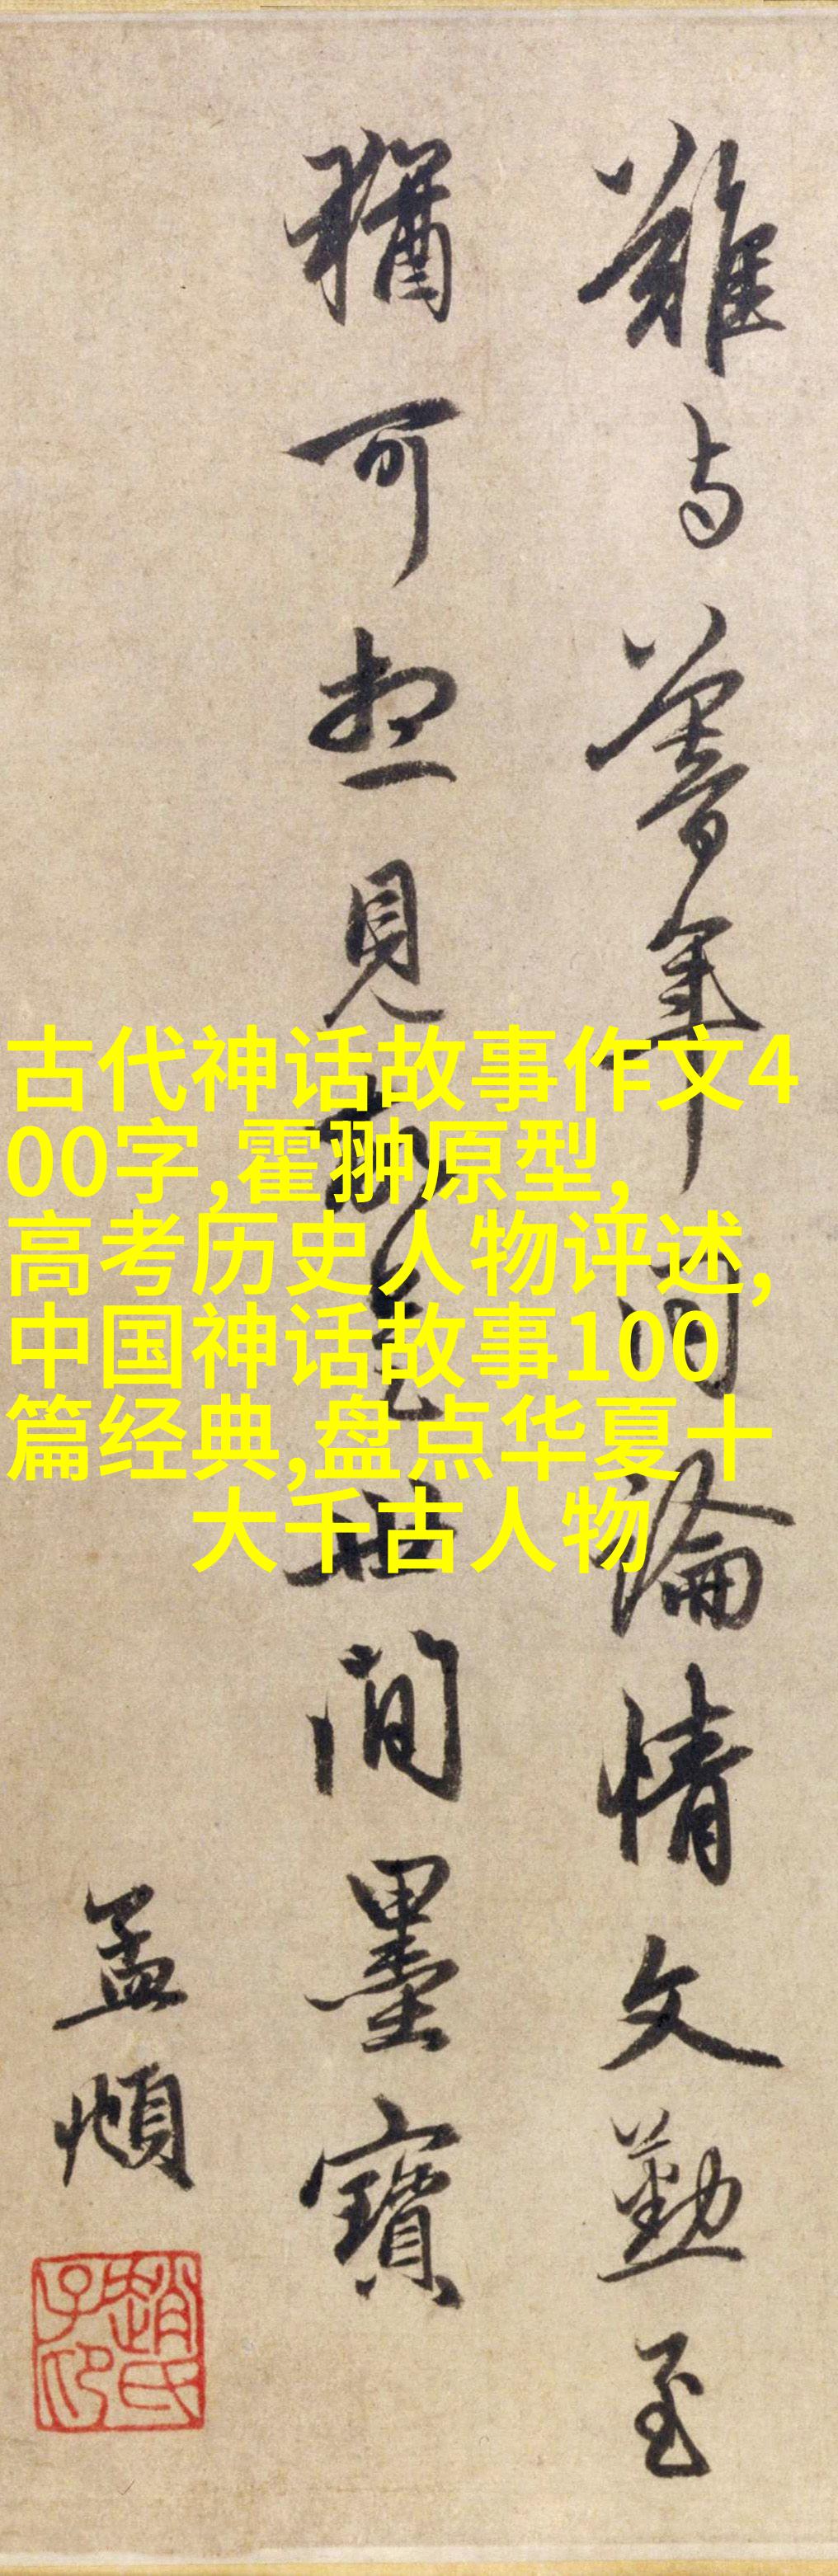 与年論情文勤至
猶可想見故是世間墨寶
孟頫
趙氏子昂
古代神话故事作文4
00字,霍翀原型,
高考历史人物评述,
中国神话故事100
篇经典,盘点华夏十
大千古人物